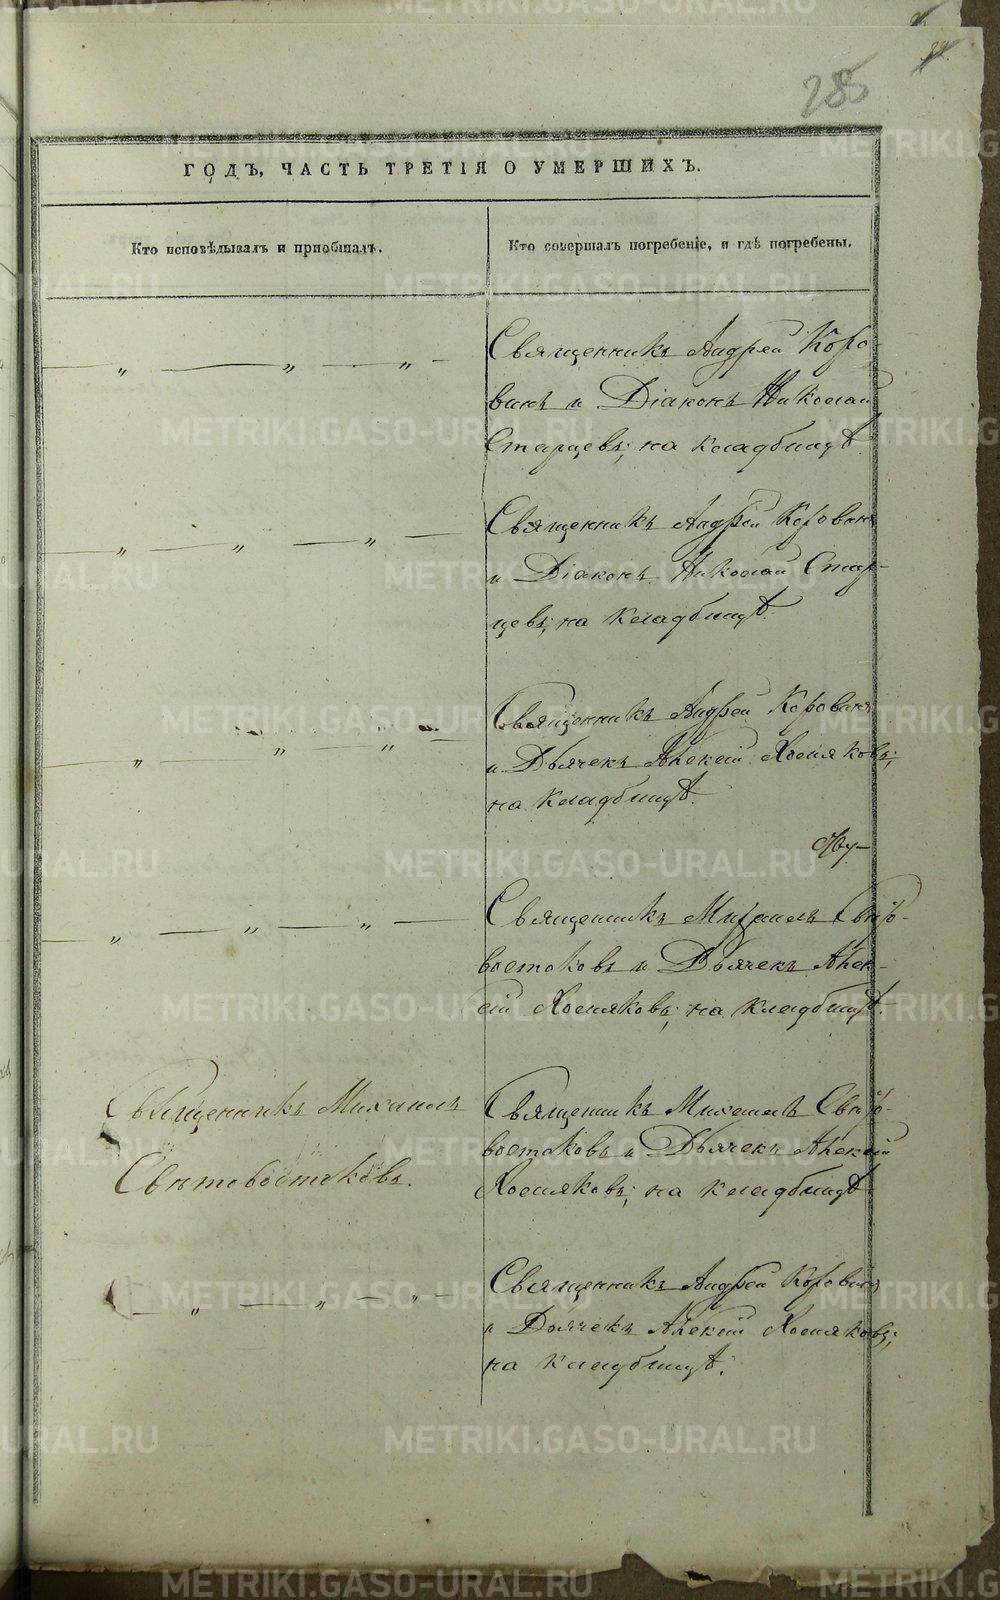 285
ГОДЪ, ЧАСТЬ ТРЕТІЯ О УМЕРШИХЪ.
Кто исповѣдывалъ и пріобщалъ.
Кто совершалъ погребеніе, и гдѣ погребены.
Священникъ Андрей Коро-
винъ и Діаконъ Николай
Старцевъ; на кладбищѣ
Священникъ Андрей Коровинъ
и Діаконъ Николай Стар-
цевъ; на кладбищѣ.
Священникъ Андрей Коровинъ
и Дьячекъ Алексій Хосняковъ;
на кладбищѣ.
Священникъ Михаилъ Свѣто-
востоковъ и Дьячекъ Алек-
сій Хосняковъ; на кладбищѣ.
Священникъ Михаилъ
Свѣтовостоковъ.
Священникъ Михаилъ Свѣто-
востоковъ и Дьячекъ Алексій
Хосняковъ; на кладбищѣ
Священникъ Андрей Коровинъ
и Дьячекъ Алексій Хосняковъ;
на кладбищѣ.
METRIKI.GASO-URAL.RU